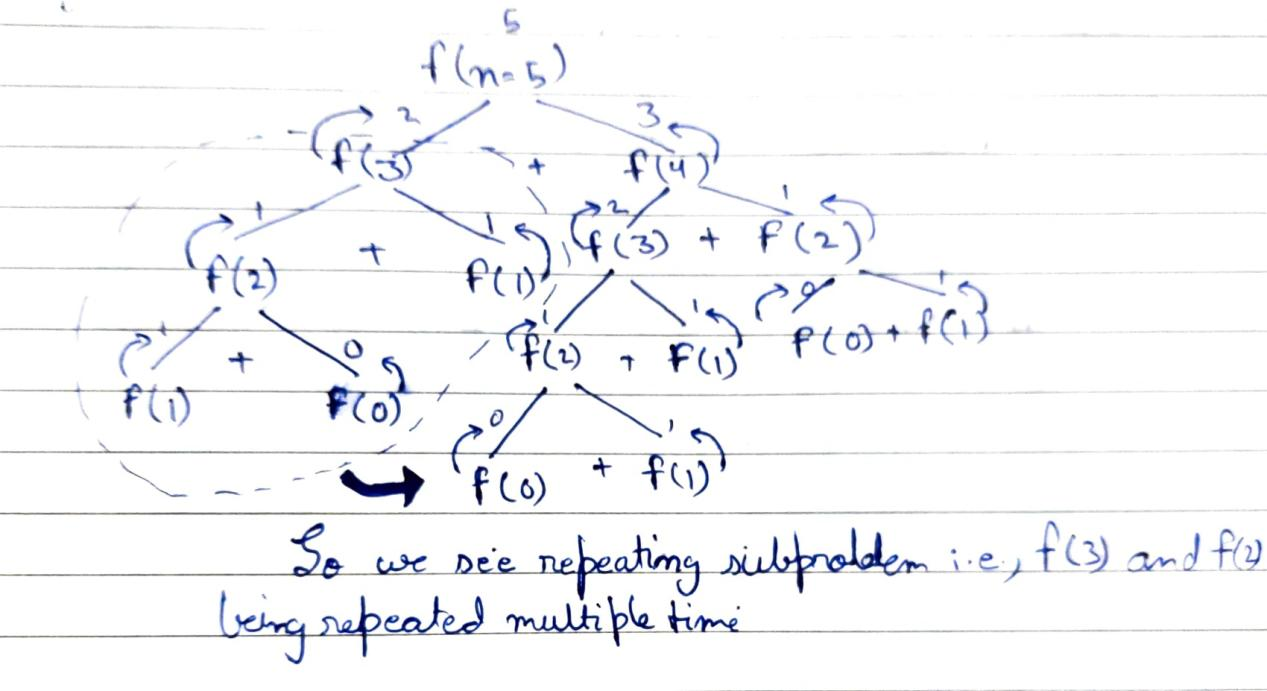 5
f(n=5)
2 3
f(3) + f(4)
1 1 2 1
f(2) + f(1) f(3) + f(2)
1 0 1 1 0 1
f(1) + f(0) f(2) + f(1) f(0) + f(1)
0 1
f(0) + f(1)
So we see repeating subproblem i.e., f(3) and f(2)
being repeated multiple time